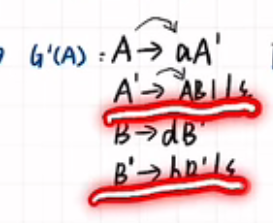 G'(A) : A → aA'
A' → ABl | ε
B → dB'
B' → bB' | ε